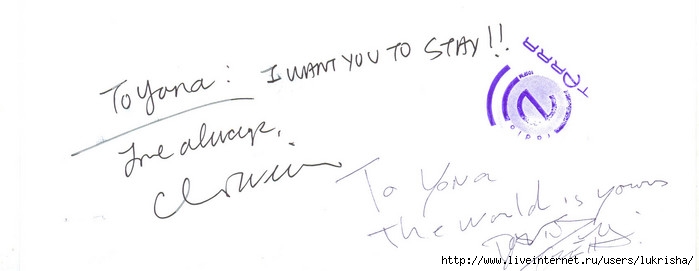 To Yana: I WANT YOU TO STAY!!
TERRA
Love always,
To Yana
The world is yours
http://www.liveinternet.ru/users/lukrisha/